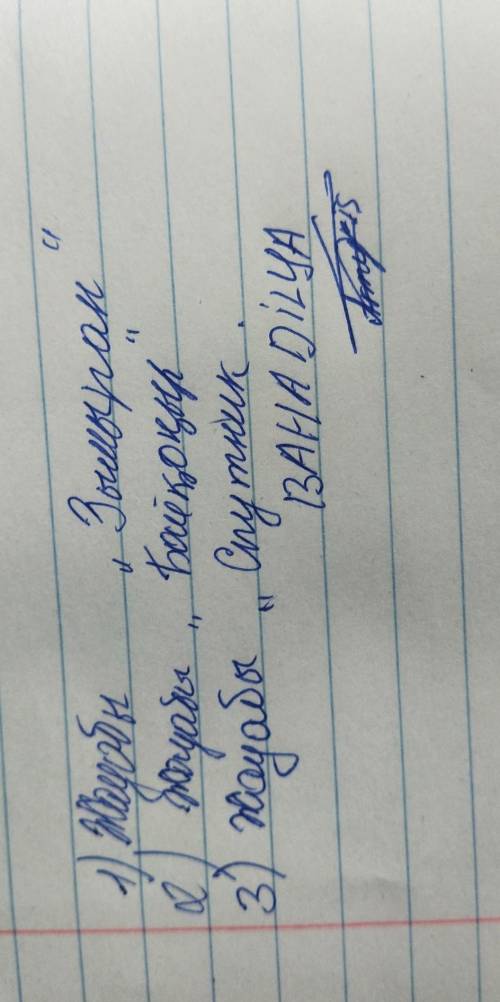 1) Жауабы „Зымыран“
2) Жауабы „Байқоңыр“
3) Жауабы „Спутник.
BAHADILYA